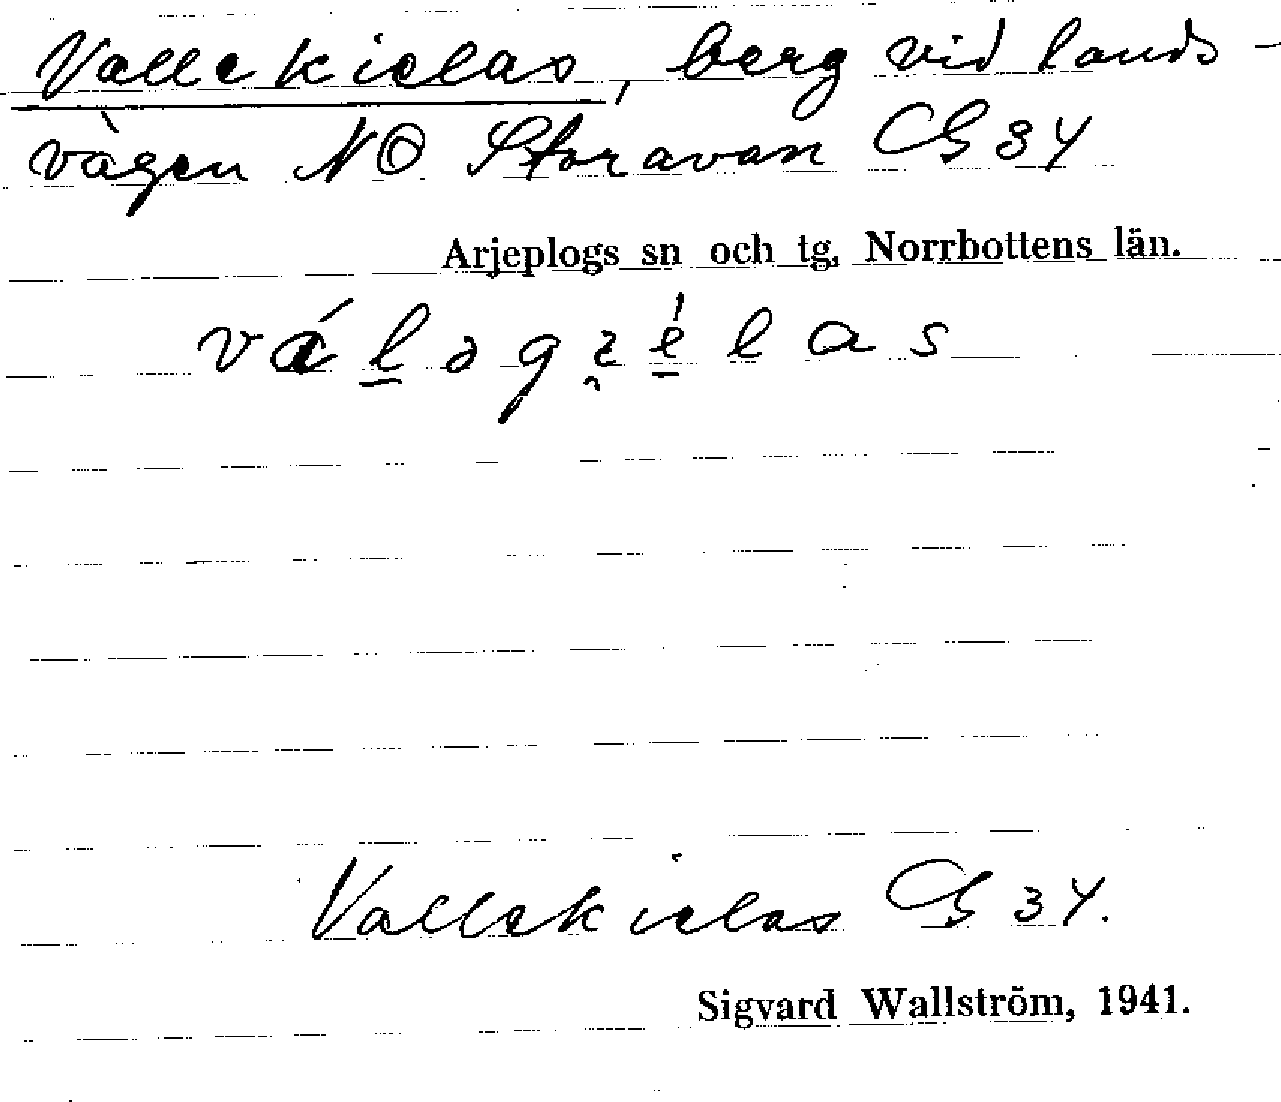 Vallekielas, berg vid lands-
vägen NO Storavan GS 34
Arjeplogs sn och tg, Norrbottens län.
Vallekielas GS 34.
Sigvard Wallström, 1941.